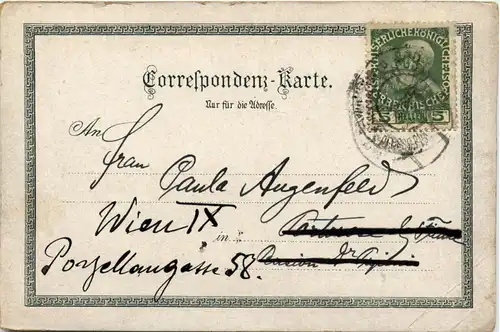 KAISERLICHE KÖNIGLICHE ÖSTERREICHISCHE
5 5
Correspondenz-Karte.
Nur für die Adresse.
An
Frau Paula Augenfeld
Wien IX
in
Porzellangasse 58.